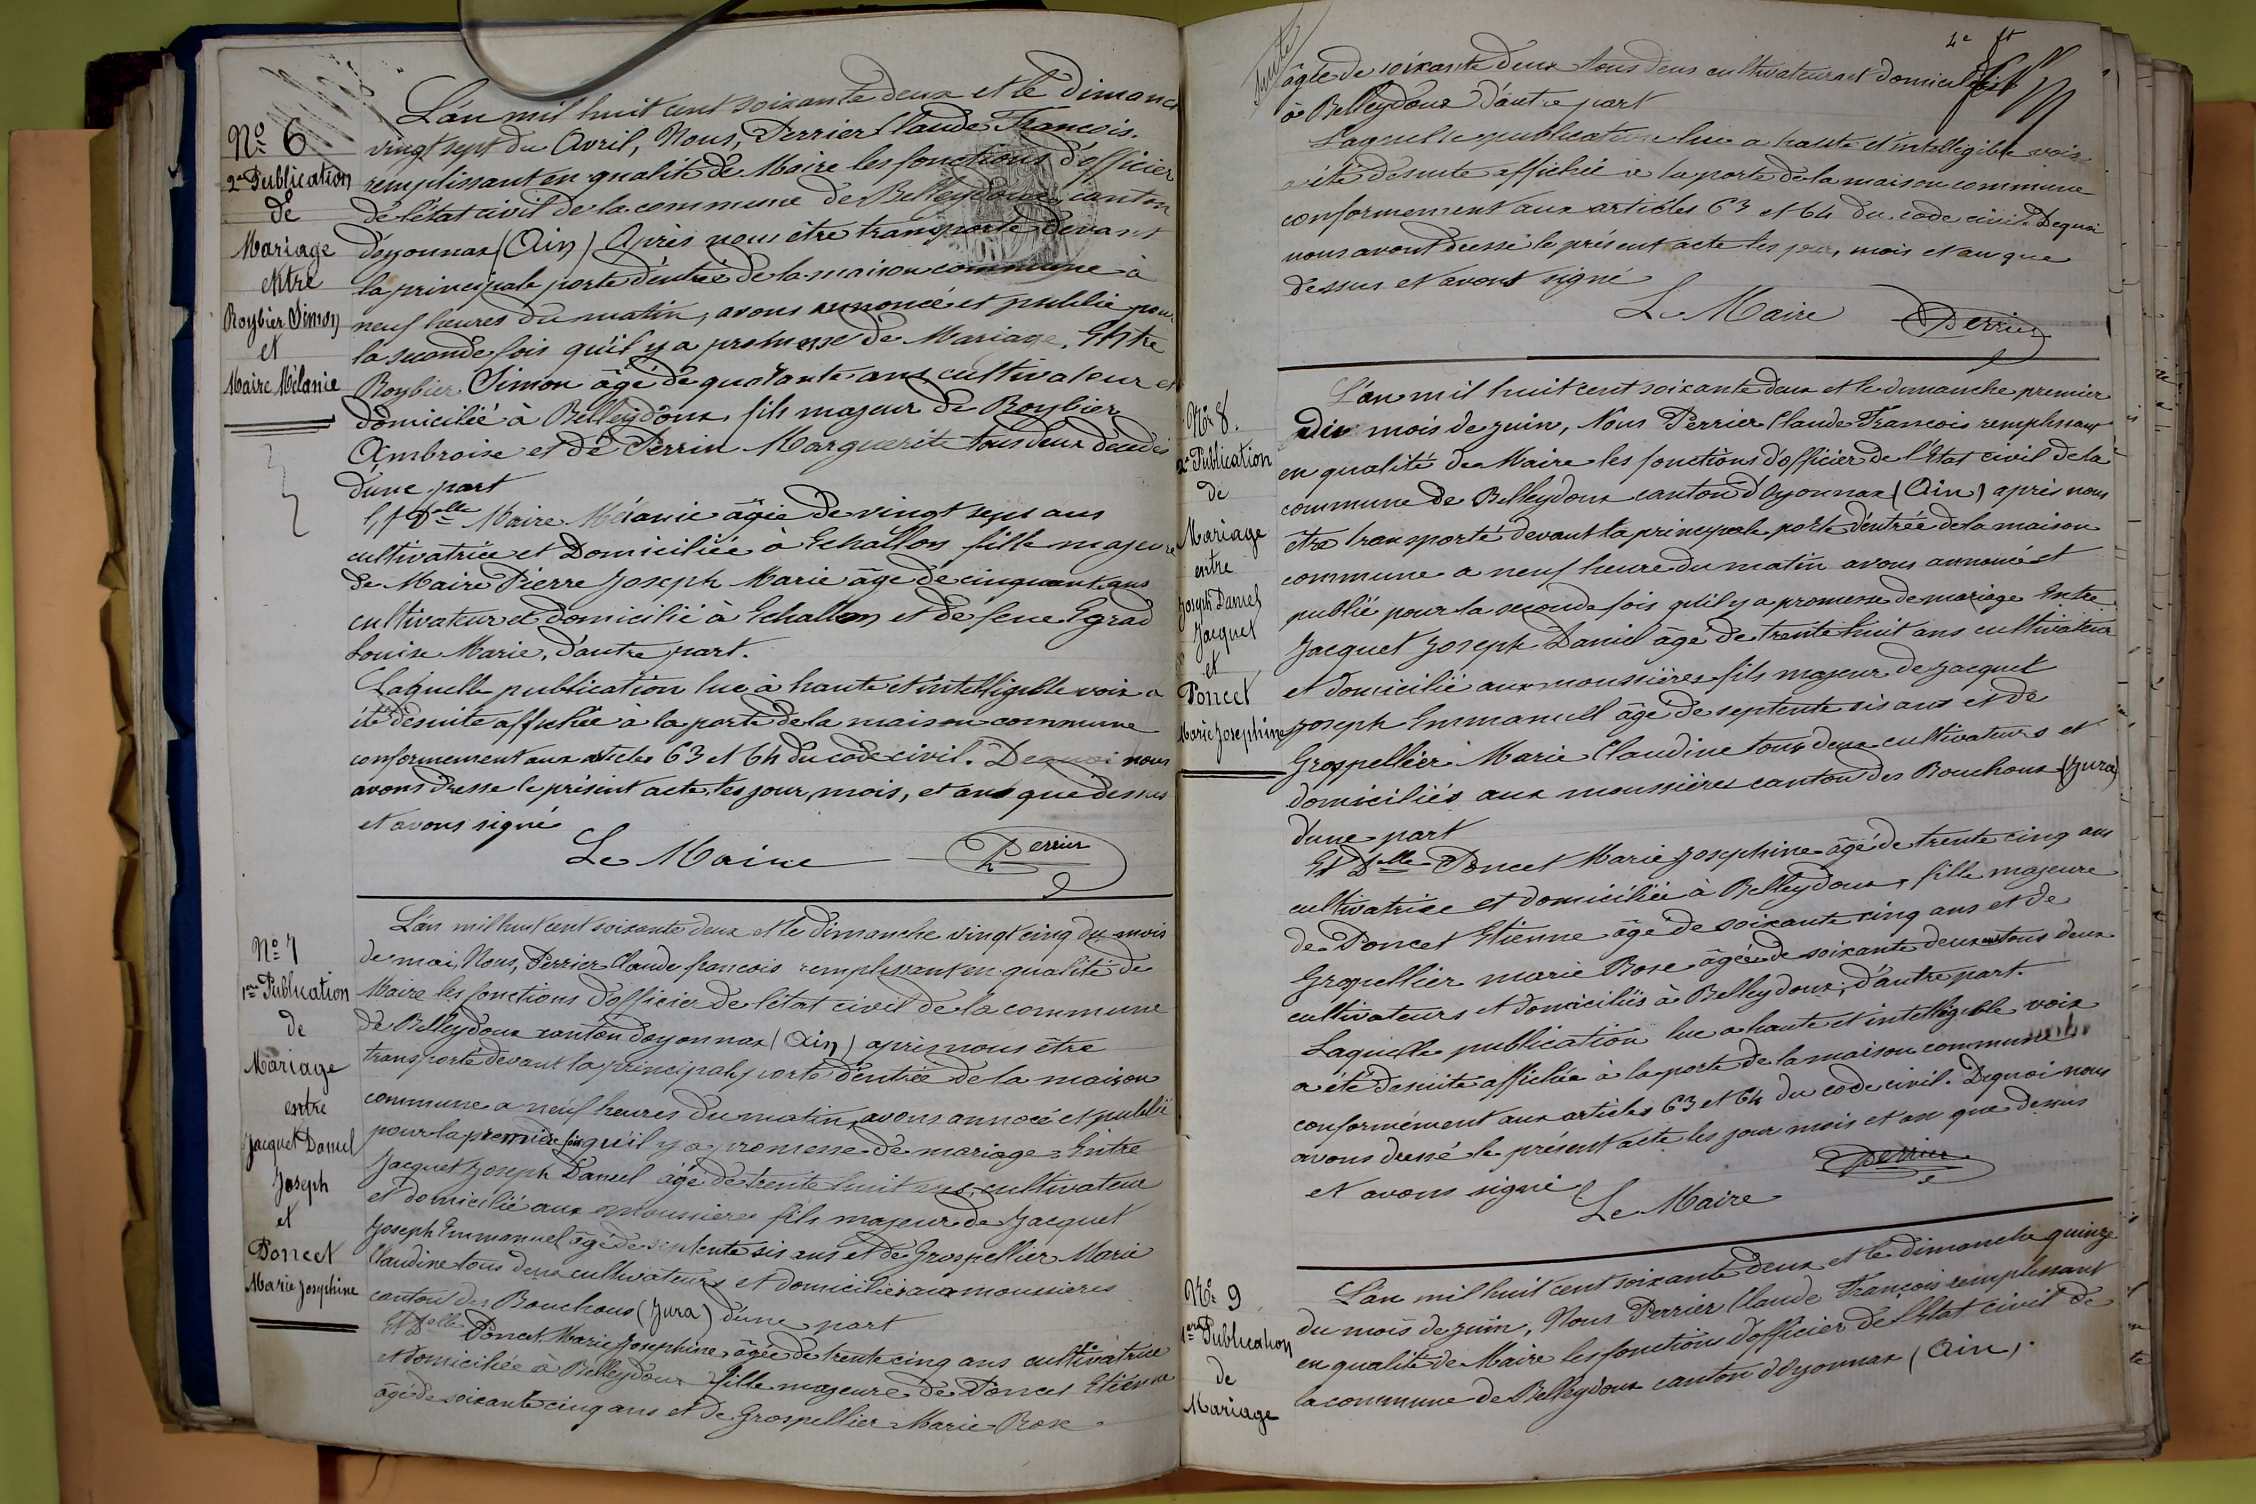 Nº 6
2e Publication
de
Mariage
entre
Roybier Simon
et
Maire Mélanie
L'an mil huit cent soixante deux et le Dimanc
vingt sept du Avril, Nous, Perrier Claude François.
remplissant en qualité de Maire les fonctions d'officier
de l'état civil de la commune de Belleydoux, canton
d'oyonnax (Ain) Après nous être transporté devant
la principale porte d'entrée de la maison commune à
neuf heures du matin, avons annoncé et publié pour
la seconde fois qu'il y a promesse de Mariage. Entre
Roybier Simon âgé de quarante ans cultivateur et
domicilié à Belleydoux, fils majeur de Roybier
Ambroise et de Perrin Marguerite tous deux décédés
d'une part
Et Delle Maire Mélanie âgée de vingt sept ans
cultivatrice et Domiciliée à Echallon fille majeure
de Maire Pierre Joseph Marie âgé de cinquante ans
cultivateur et domicilié à Echallon et de feue Egrad
Louise Marie, d'autre part.
Laquelle publication lue à haute et intelligible voix a
été desuite affichée à la porte de la maison commune
conformement aux articles 63 et 64 du code civil. Dequoi nous
avons dressé le présent acte, les jour, mois, et ans que dessus
et avons signé
Le Maire Perrier
Nº 7
1ère Publication
de
Mariage
entre
Jacquet Daniel
Joseph
et
Poncet
Marie Josephine
L'an mil huit cent soixante deux et le Dimanche vingt cinq du mois
de mai, Nous, Perrier Claude francois remplissant en qualité de
Maire les fonctions d'officier de l'état civil de la commune
de Belleydoux canton d'oyonnax (Ain) après nous être
transporté devant la principale porte d'entrée de la maison
commune a neuf heures du matin, avons annocé et publié
pour la premiere fois qu'il y a promesse de mariage = Entre
Jacquet Joseph Daniel âgé de trente huit ans, cultivateur
et domicilié aux moussieres fils majeur de Jacquet
Joseph Emmanuel âgé de septente sis ans et de Grospellier Marie
Claudine tous deux cultivateurs et domiciliés aux moussieres
canton des Bouchoux (Jura) d'une part
Et Delle Poncet Marie Josephine, âgée de trente cinq ans cultivatrice
et domiciliée à Belleydoux fille majeure de Poncet Etienne
âgé de soixante cinq ans et de Grospellier Marie Rose
suite
âgée de soixante deux tous deux cultivateurs et domiciliés
à Belleydoux d'autre part
Laquelle publication lue a haute et intelligible voix
a été desuite affichée à la porte de la maison commune
conformement aux articles 63 et 64 du code civil. Dequoi
nous avons dressé le présent acte les jour, mois et an que
dessus et avons signé
Le Maire Perrier
Nº 8.
2e Publication
de
Mariage
entre
Joseph Daniel
Jacquet
et
Poncet
Marie Josephine
L'an mil huit cent soixante deux et le dimanche premier
Du mois de juin, Nous Perrier Claude Francois remplissant
en qualité de Maire les fonctions d'officier de l'Etat civil de la
commune de Belleydoux canton d'Oyonnax (Ain) après nous
être transporté devant la principale porte d'entrée de la maison
commune a neuf heure du matin avons annoncé et
publié pour la seconde fois qu'il y a promesse de mariage Entre
Jacquet Joseph Daniel âgé de trente huit ans cultivateur
et domicilié aux moussières fils majeur de Jacquet
Joseph Emmanuell âgé de septente sis ans et de
Grospellier Marie Claudine tous deux cultivateurs et
domiciliés aux moussières canton des Bouchoux (Jura)
d'une part
Et Delle Poncet Marie Josephine âgé de trente cinq ans
cultivatrice et domiciliée à Belleydoux, fille majeure
de Poncet Etienne âgé de soixante cinq ans et de
Grospellier marie Rose âgée de soixante deux ans tous deux
cultivateurs et domiciliés à Belleydoux, d'autre part.
Laquelle publication lue a haute et intelligible voix
a été desuite affichée à la porte de la maison commune
conformément aux articles 63 et 64 du code civil. Dequoi nous
avons dressé le présent acte les jour mois et an que dessus
et avons signé
Le Maire Perrier
Nº 9
1ère Publication
de
Mariage
L'an mil huit cent soixante deux et le dimanche quinze
du mois de juin, Nous Perrier Claude François remplissant
en qualité de Maire les fonctions d'officier de l'Etat civil de
la commune de Belleydoux canton d'Oyonnax (Ain).